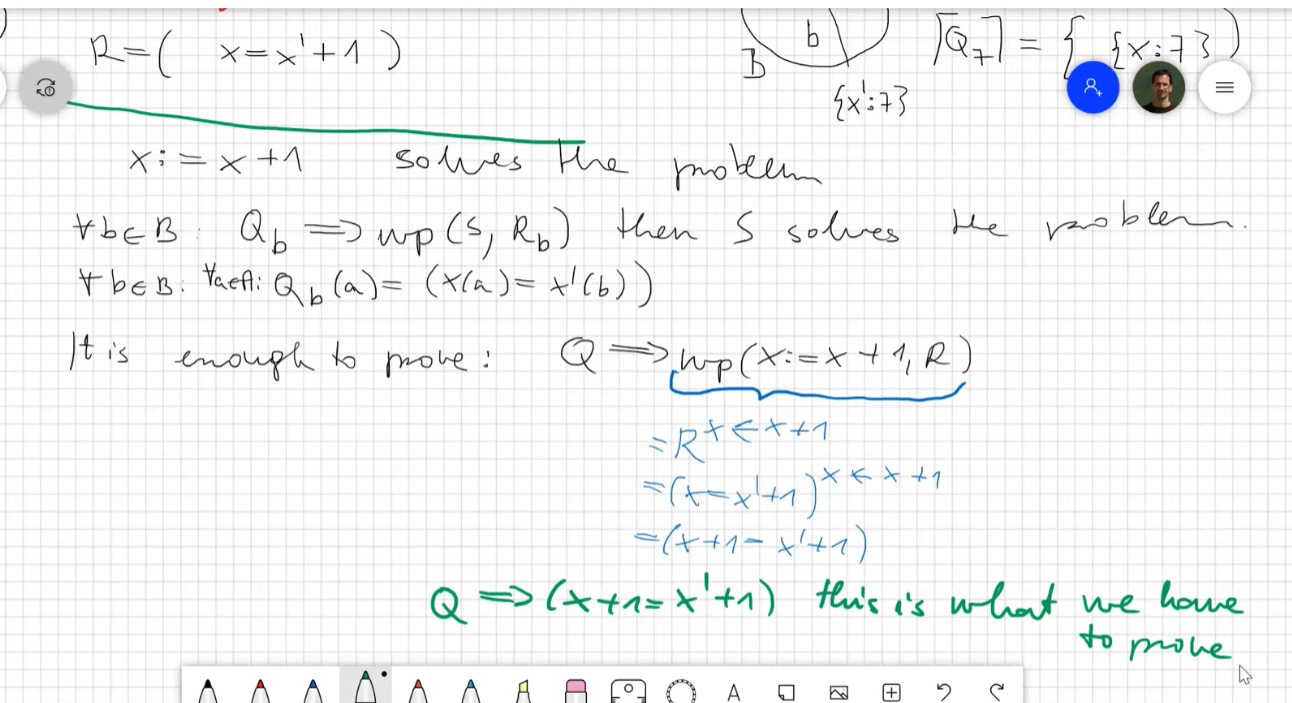 R = ( x = x' + 1 )
B b ⌈Q₇⌉ = { {x:7} }
{x':7}
x := x + 1 solves the problem
∀b∈B: Q_b ⟹ wp(S, R_b) then S solves the problem.
∀b∈B: ∀a∈A: Q_b(a) = (x(a) = x'(b))
It is enough to prove: Q ⟹ wp(x := x + 1, R)
= R^{x ← x+1}
= (x = x' + 1)^{x ← x + 1}
= (x + 1 = x' + 1)
Q ⟹ (x + 1 = x' + 1) this is what we have
to prove
A